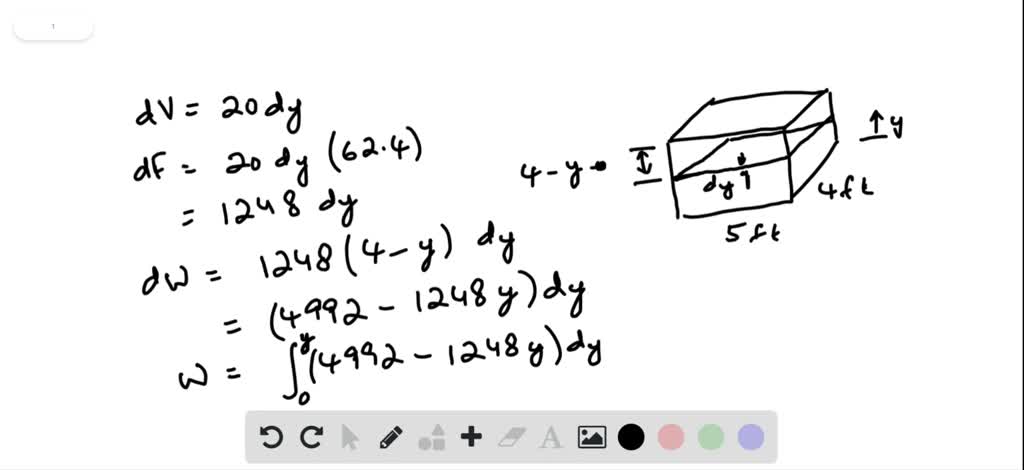 1
dV = 20 dy
dF = 20 dy (62.4)
= 1248 dy
dW = 1248 (4 - y) dy
= (4992 - 1248 y) dy
W = ∫₀^y (4992 - 1248 y) dy
4 - y
y
dy
4 ft
5 ft
A